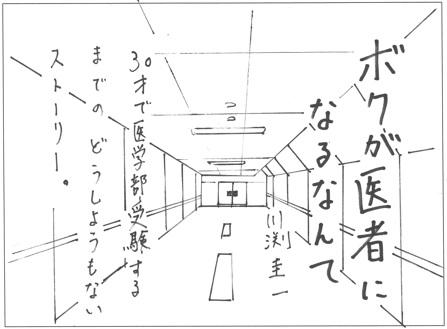 ボクが医者に
なるなんて
川渕圭一
30才で医学部受験する
までの どうしようもない
ストーリー。